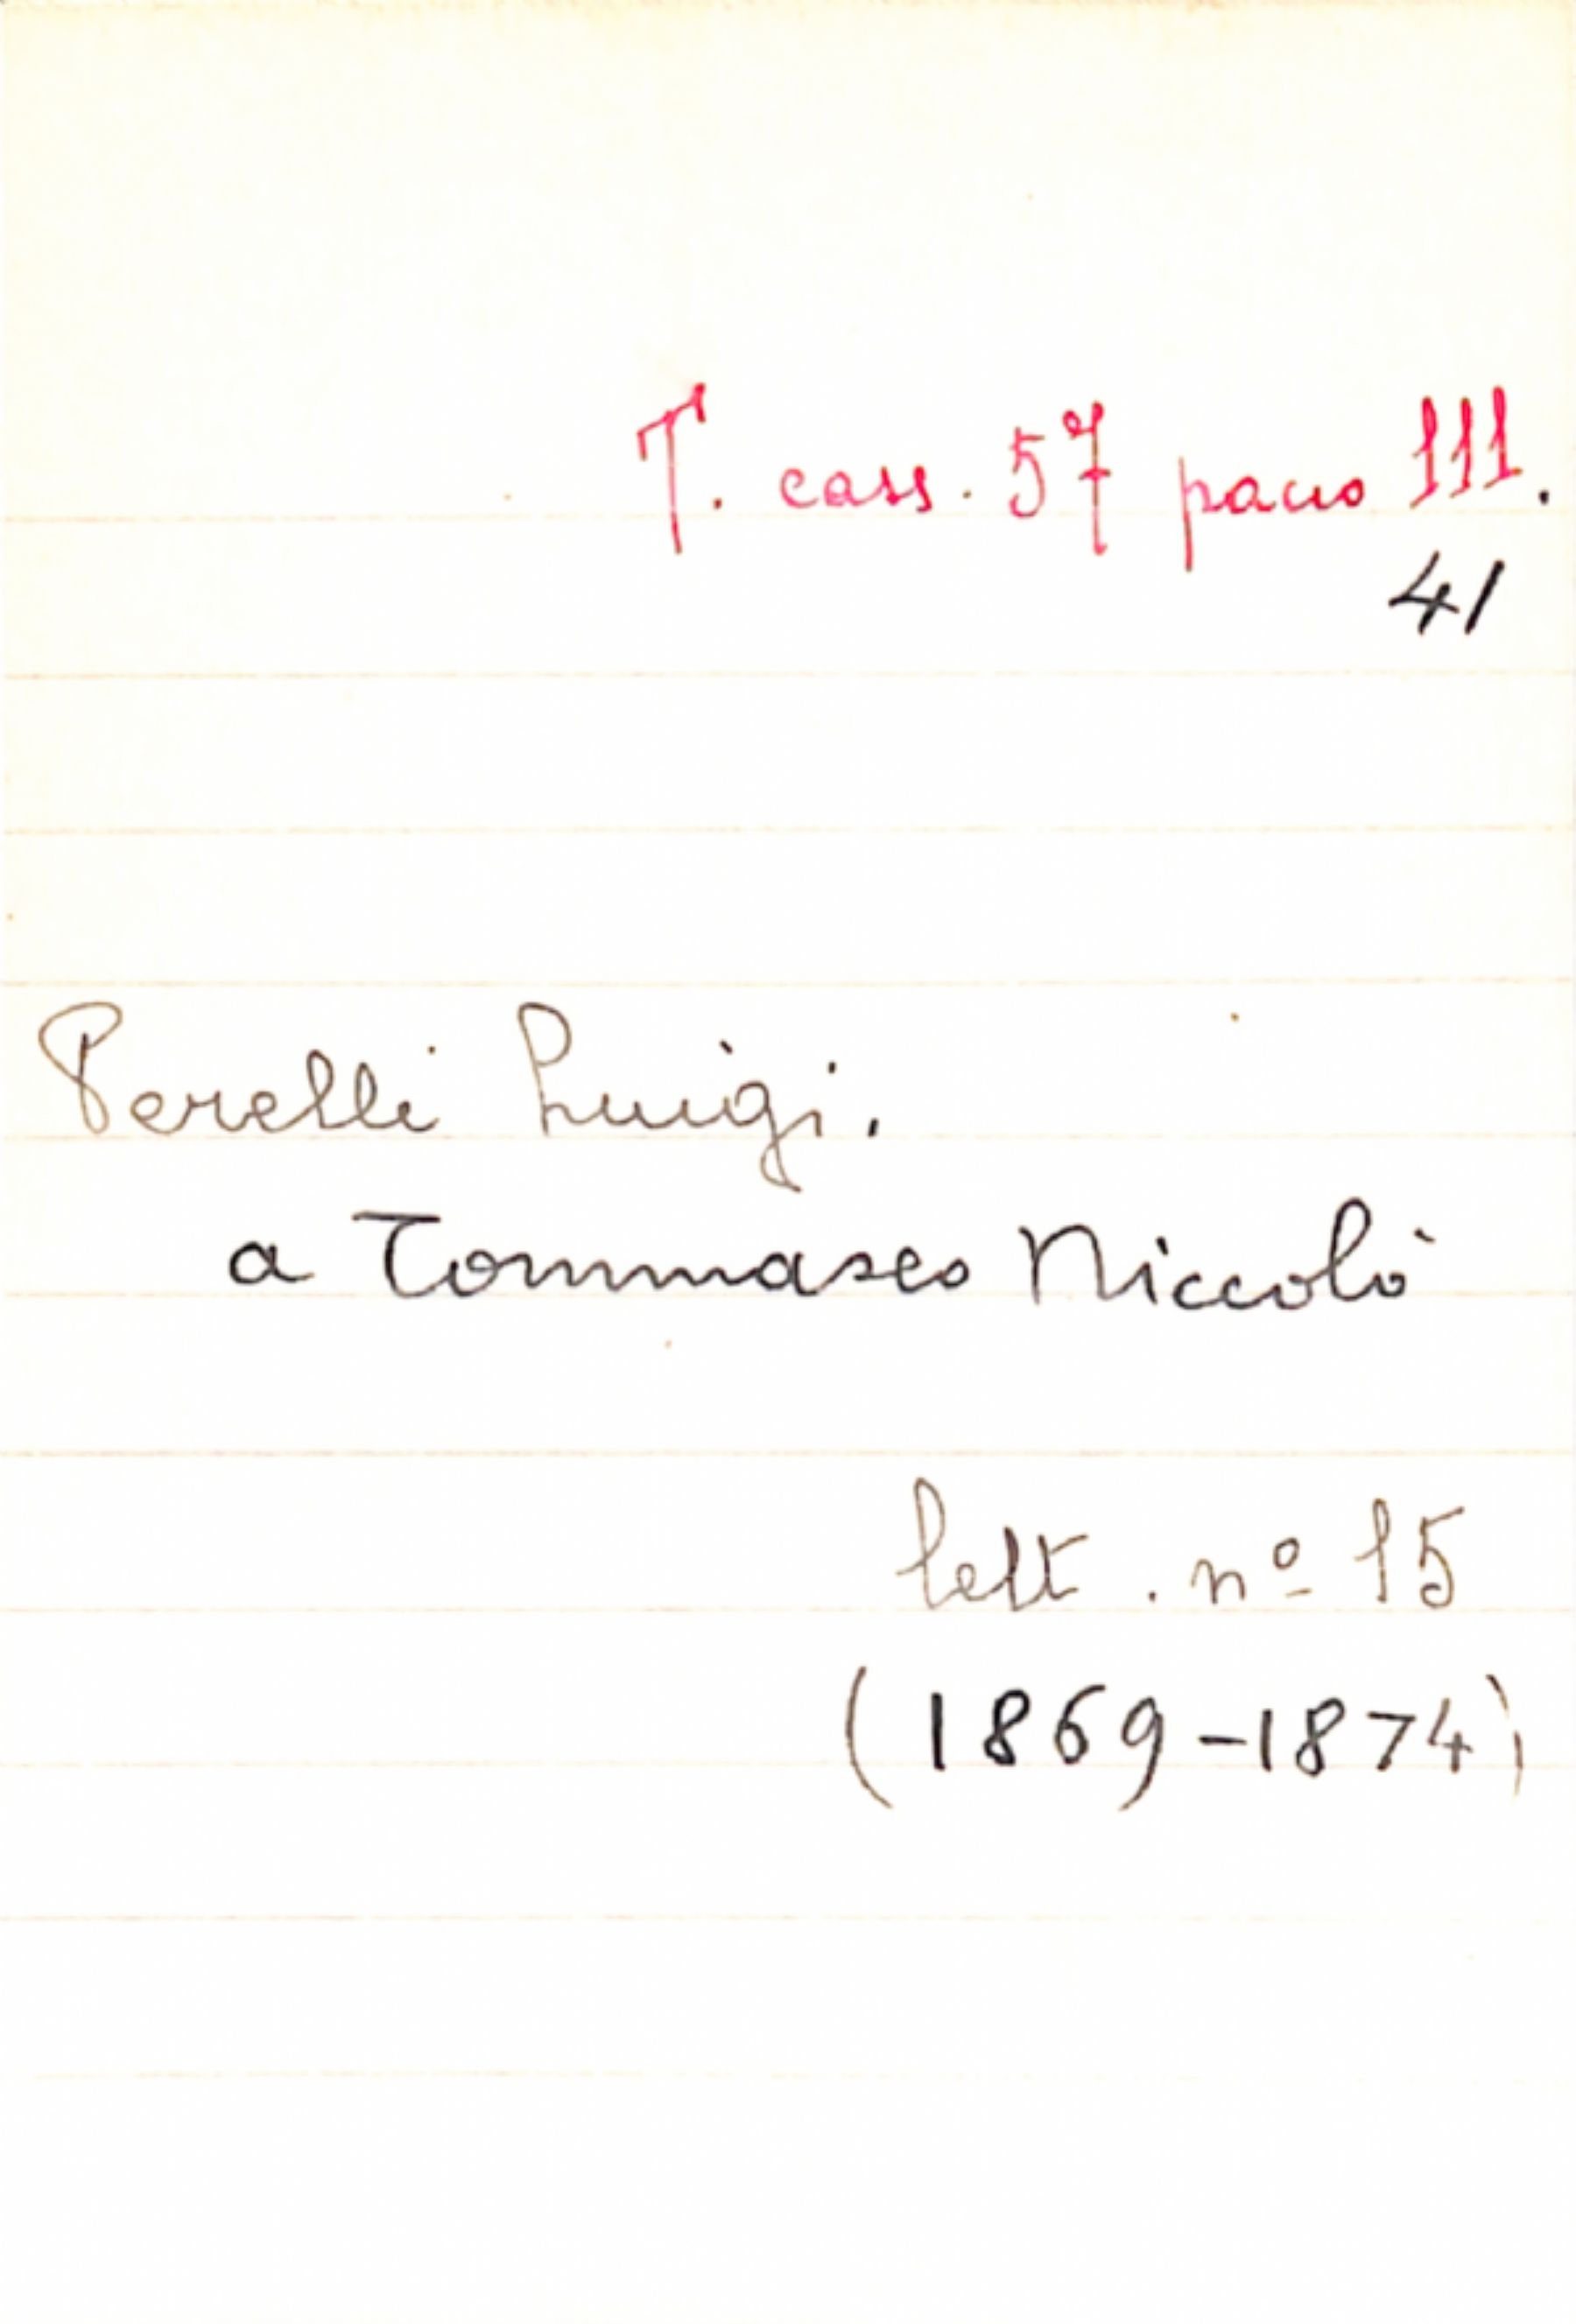 T. cass. 57 pacco 111.
41
Perelli Luigi.
a Tommaseo Niccolò
lett. nº 15
(1869-1874)